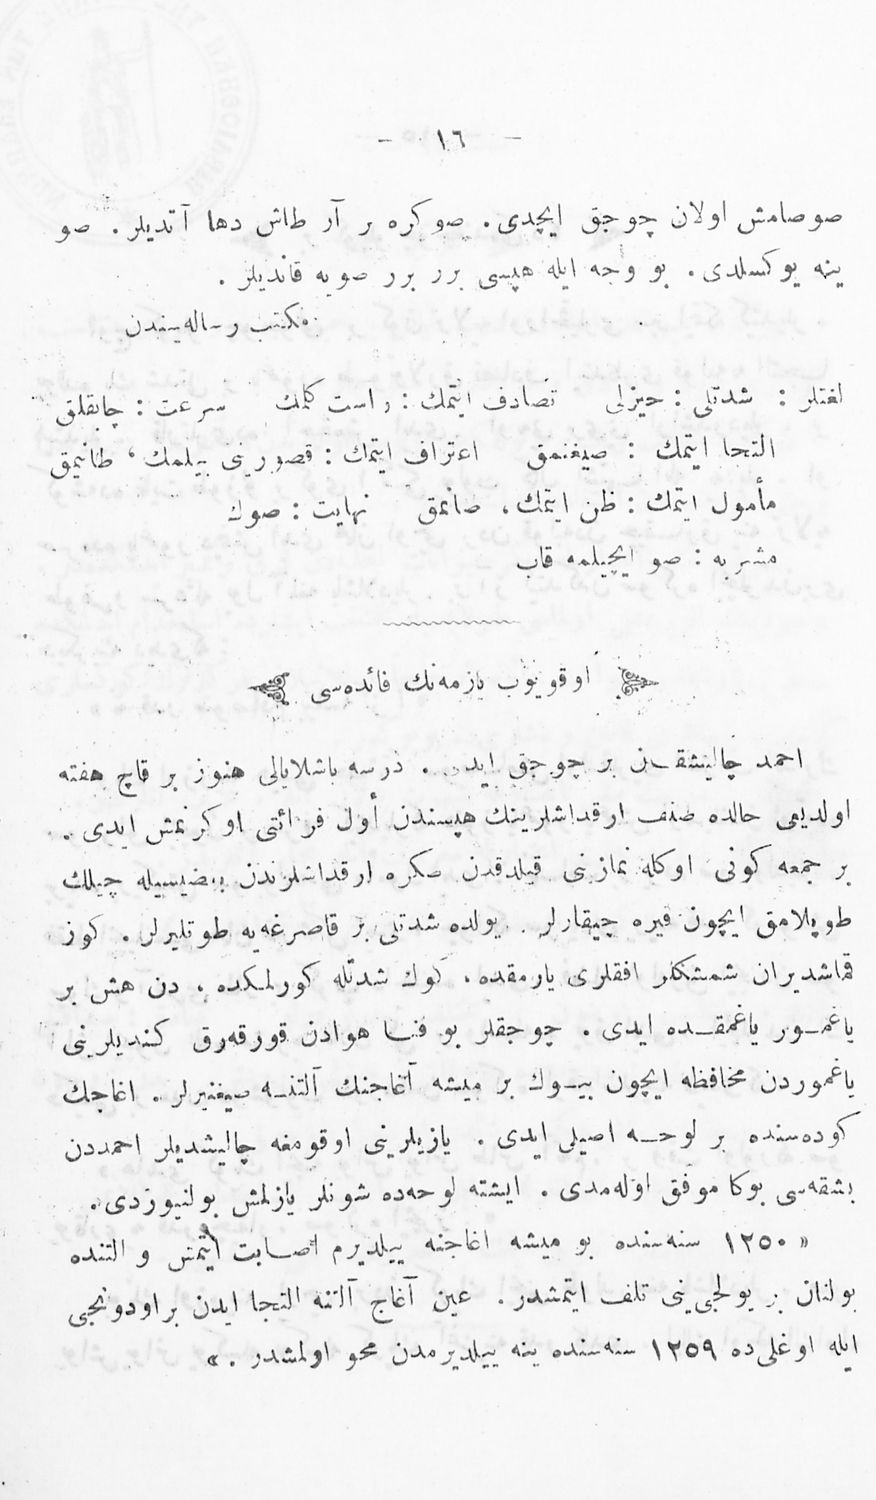 — ١٦ —
صوصامش اولان چوجق ایچدی. صوكره بر آز طاش دها آتدیلر. صو
ینه یوكسلدی. بو وجه ایله هپسی برر برر صویه قاندیلر.
مكتب رساله‌سندن
لغتلر : شدتلی : حیزلی تصادف ایتمك : راست كلمك سرعت : چابقلق
التجا ایتمك : صیغنمق اعتراف ایتمك : قصورینی بیلمك، طانیمق
مأمول ایتمك : ظن ایتمك، صانمق نهایت : صوك
مشربه : صو ایچیلمه قاب
اوقویوب یازمه‌نك فائده‌سی
احمد چالیشقــان بر چوجق ایدی. درسه باشلایالی هنوز بر قاچ هفته
اولدیغی حالده صنف ارقداشلرینك هپسندن أول قرائتی اوكرنمش ایدی.
بر جمعه كونی اوكله نمازنی قیلدقدن صكره ارقداشلرندن بعضیسیله چیلك
طوپلامق ایچون قیره چیقارلر. یولده شدتلی بر قاصرغه‌یه طوتلیرلر. كوز
قماشدیران شمشكلر افقلری یارمقده، كوك شدتله كورلمكده، دن هش بر
یاغمــور یاغمقــده ایدی. چوجقلر بو فنــا هوادن قورقه‌رق كندیلرینی
یاغموردن محافظه ایچون بیــوك بر میشه آغاجنك آلتنــه صیغنیرلر. اغاجك
كوده‌سنده بر لوحــه اصیلی ایدی. یازیلرینی اوقومغه چالیشدیلر احمددن
بشقه‌سی بوكا موفق اوله‌مدی. ایشته لوحه‌ده شونلر یازلمش بولنیوردی.
« ١٢٥٠ سنه‌سنده بو میشه اغاجنه ییلدیرم اصــابت ایتمش و التنده
بولنان بر یولجی‌ینی تلف ایتمشدر. عین آغاج آلتنه التجا ایدن بر اودونجی
ایله اوغلی‌ده ١٢٥٩ سنه‌سنده ینه ییلدیرمدن محو اولمشدر. »